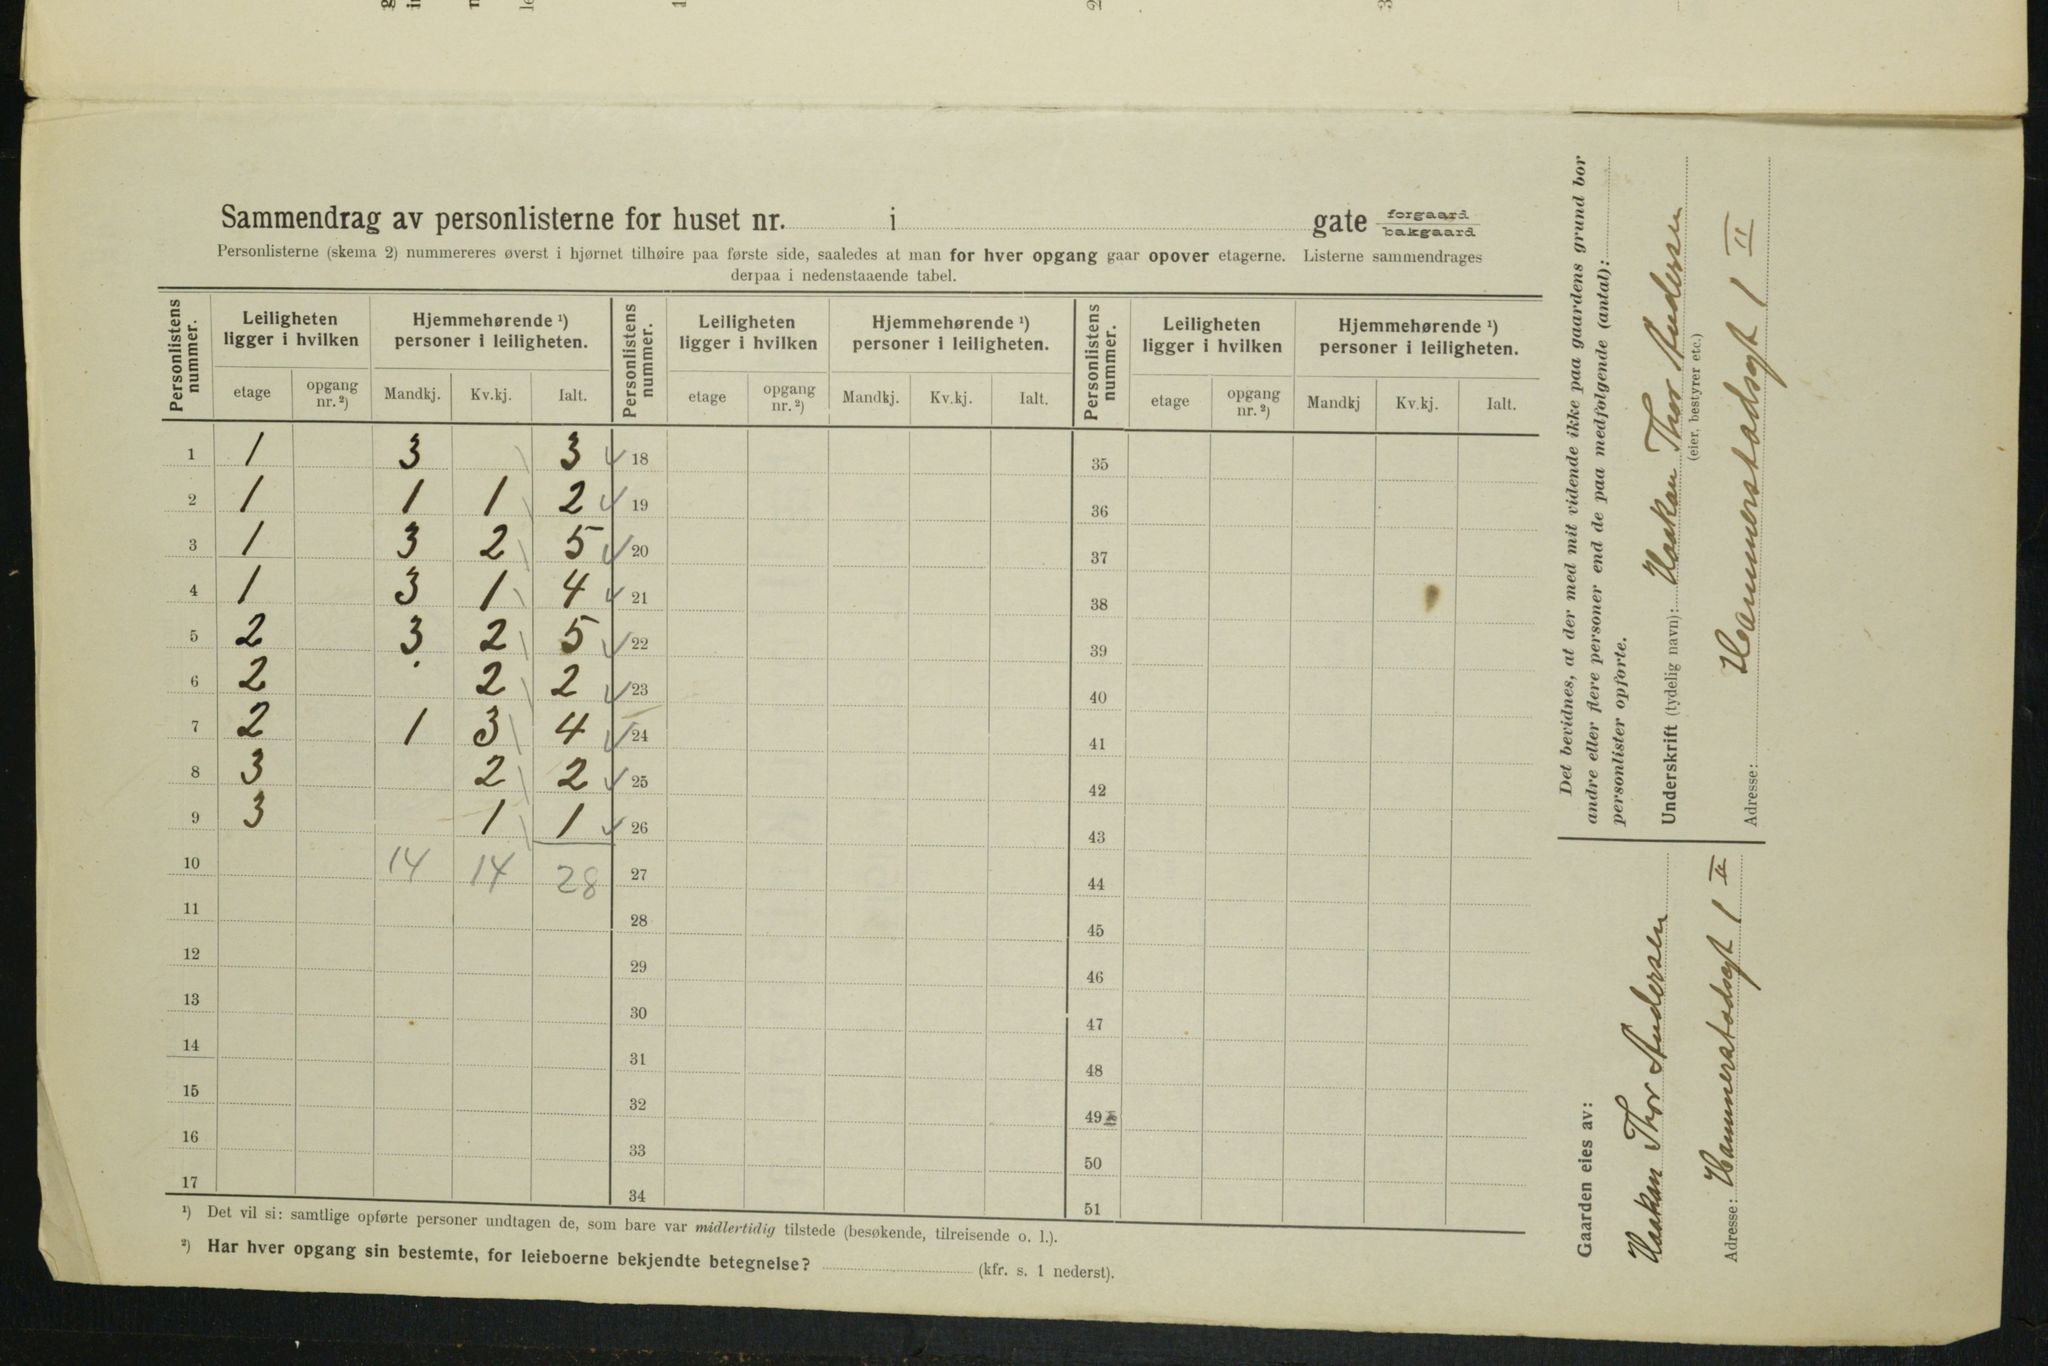 Sammendrag av personlisterne for huset nr. i gate forgaard bakgaard
Personlisterne (skema 2) nummereres øverst i hjørnet tilhøire paa første side, saaledes at man for hver opgang gaar opover etagerne. Listerne sammendrages
derpaa i nedenstaaende tabel.
Personlistens nummer. Leiligheten ligger i hvilken Hjemmehørende ¹) personer i leiligheten. Personlistens nummer. Leiligheten ligger i hvilken Hjemmehørende ¹) personer i leiligheten. Personlistens nummer. Leiligheten ligger i hvilken Hjemmehørende ¹) personer i leiligheten.
etage opgang nr. ²) Mandkj. Kv.kj. Ialt. etage opgang nr. ²) Mandkj. Kv.kj. Ialt. etage opgang nr. ²) Mandkj Kv.kj. Ialt.
1 1 3 3 18 35
2 1 1 1 2 19 36
3 1 3 2 5 20 37
4 1 3 1 4 21 38
5 2 3 2 5 22 39
6 2 2 2 23 40
7 2 1 3 4 24 41
8 3 2 2 25 42
9 3 1 1 26 43
10 14 14 28 27 44
11 28 45
12 29 46
13 30 47
14 31 48
15 32 49
16 33 50
17 34 51
¹) Det vil si: samtlige opførte personer undtagen de, som bare var midlertidig tilstede (besøkende, tilreisende o. l.).
²) Har hver opgang sin bestemte, for leieboerne bekjendte betegnelse? (kfr. s. 1 nederst).
Det bevidnes, at der med mit vidende ikke paa gaardens grund bor
andre eller flere personer end de paa medfølgende (antal):
personlister opførte.
Underskrift (tydelig navn): Haakan Thor Andersen
(eier, bestyrer etc.)
Adresse: Hammerstadsgt 1 II
Gaarden eies av:
Haakan Thor Andersen
Adresse: Hammerstadsgt 1 II